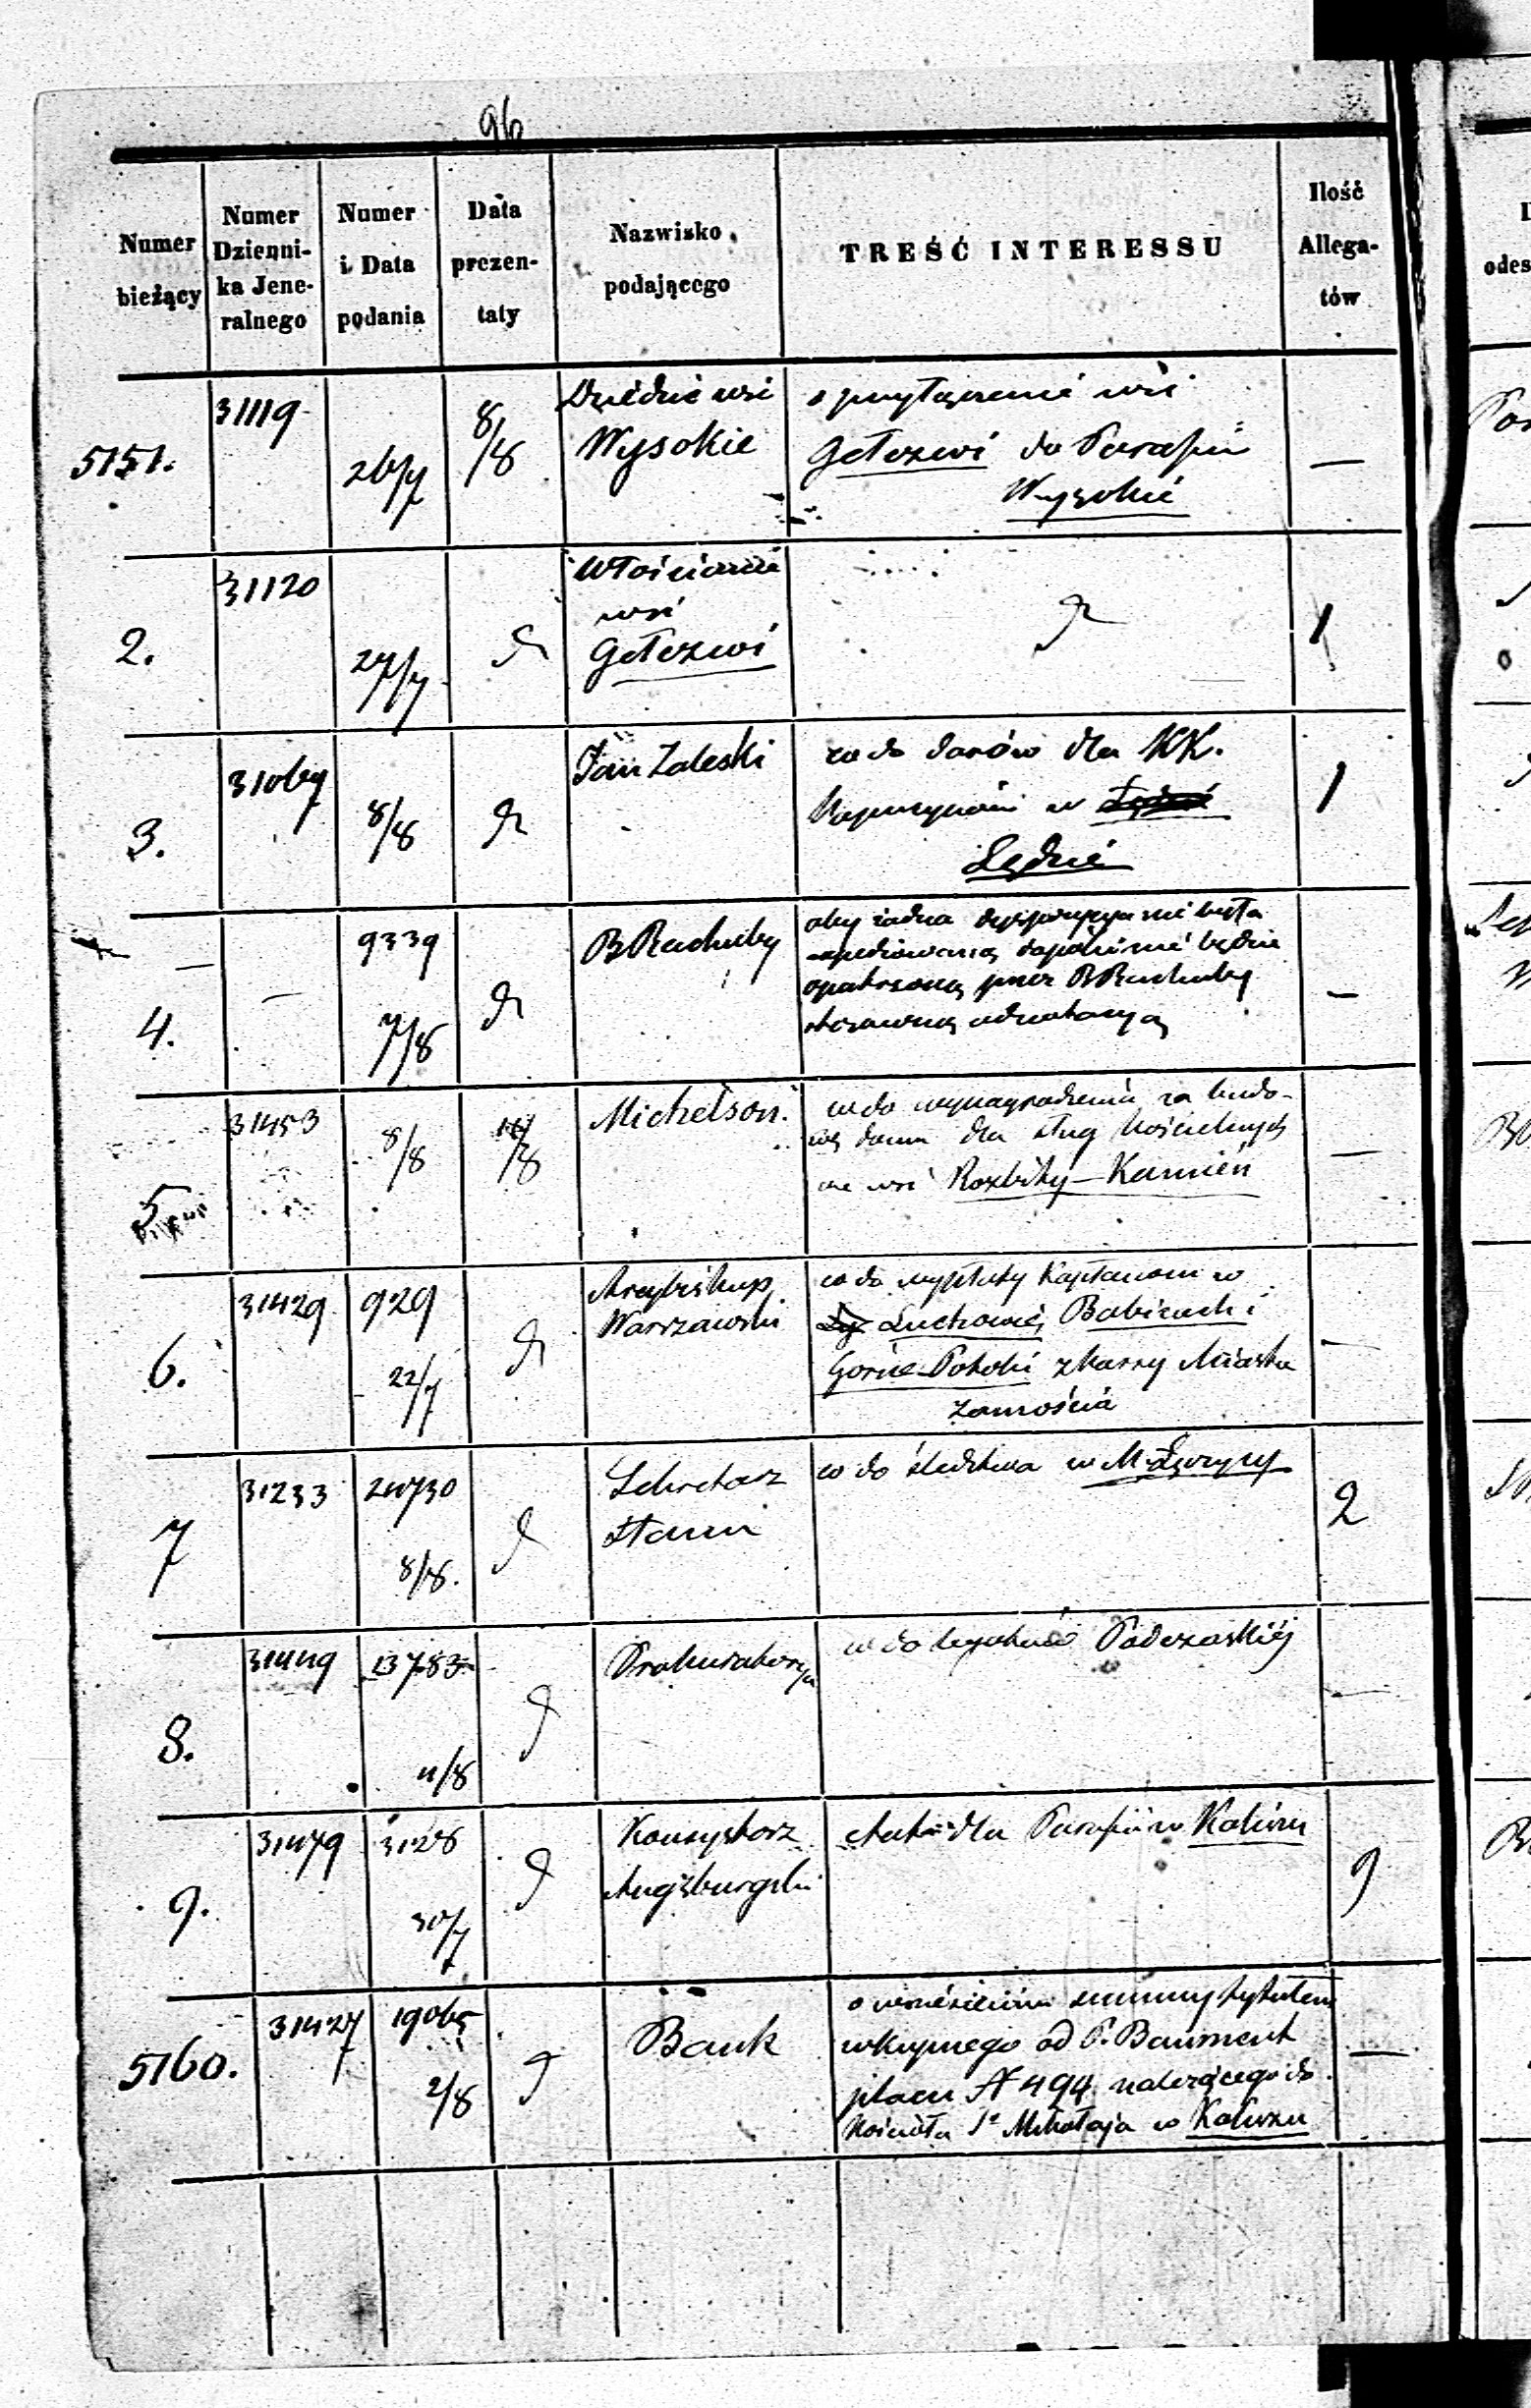 96
Numer bieżący
Numer Dzienni-ka Jene-ralnego
Numer i Data podania
Data prezen-taty
Nazwisko podającego
TREŚĆ INTERESSU
Ilość Allega-tów
5151.
31119
26/7
8/8
Dziedzic wsi
Wysokie
o przyłączenie wsi
Gołezwi do Parafii
Wysokie
—
2.
31120
27/7
Włościanie
wsi
Gołezwi
1
3.
31067
8/8
Jan Zaleski
co do darów dla KK.
Kapucynów w
Lędzie
1
4.
—
9339
7/8
B Rachuby
aby żadna dyspozycya nie była
dopóki nie będzie
opatrzoną przez B Rachuby
stosowną adnotacyą
—
5
31453
8/8
Michelson
co do wynagrodzenia za budo-
wę domu dla sług kościelnych
we wsi Rozbity-Kamień
—
6.
31429
929
22/7
Arcybiskup
Warszawski
co do wypłaty Kapłanom w
Babicach i
Górne-Potoki z kassy Miasta
Zamościa
—
7
31233
20730
8/8.
Sekretarz
Stanu
co do śledztwa w M. Łęczycy
2
8.
31449
13783
11/8
Prokuratorya
co do legatów Podczaskiéj
—
9.
31479
3128
30/7
Konsystorz
Augsburgski
dla Parafii w Kaliszu
9
5160.
31427
19065
2/8
Bank
o wniesieniu summy tytułem
wkupnego od P. Baument
placu N 494 należącego do
Kościoła S° Mikołaja w Kaliszu
—